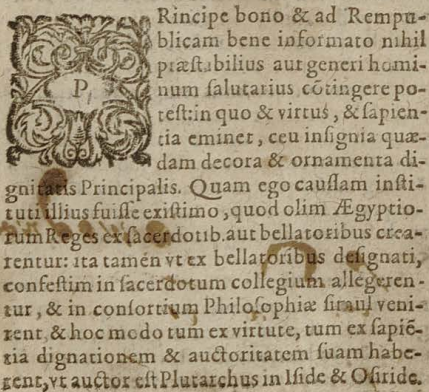 PRincipe bono & ad Rempu-
blicam bene informato nihil
præstabilius aut generi homi-
num salutarius cōtingere po-
test: in quo & virtus, & sapien-
tia eminet, ceu insignia quæ-
dam decora & ornamenta di-
gnitatis Principalis. Quam ego caussam insti-
tuti illius fuisse existimo, quod olim Ægyptio-
rum Reges ex sacerdotib. aut bellatoribus crea-
rentur: ita tamen vt ex bellatoribus designati,
confestim in sacerdotum collegium allegeren-
tur, & in consortium Philosophiæ simul veni-
rent, & hoc modo tum ex virtute, tum ex sapiē-
tia dignationem & auctoritatem suam habe-
rent, vt auctor est Plutarchus in Iside & Osiride.